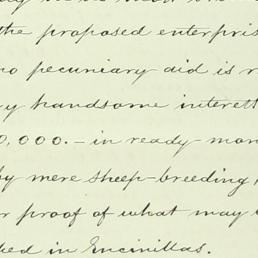 the proposed enterpris
no pecuniary aid is r
ry handsome interest
0,000.- in ready mon
by mere sheep-breeding,
r proof of what may
ked in Encinillas.